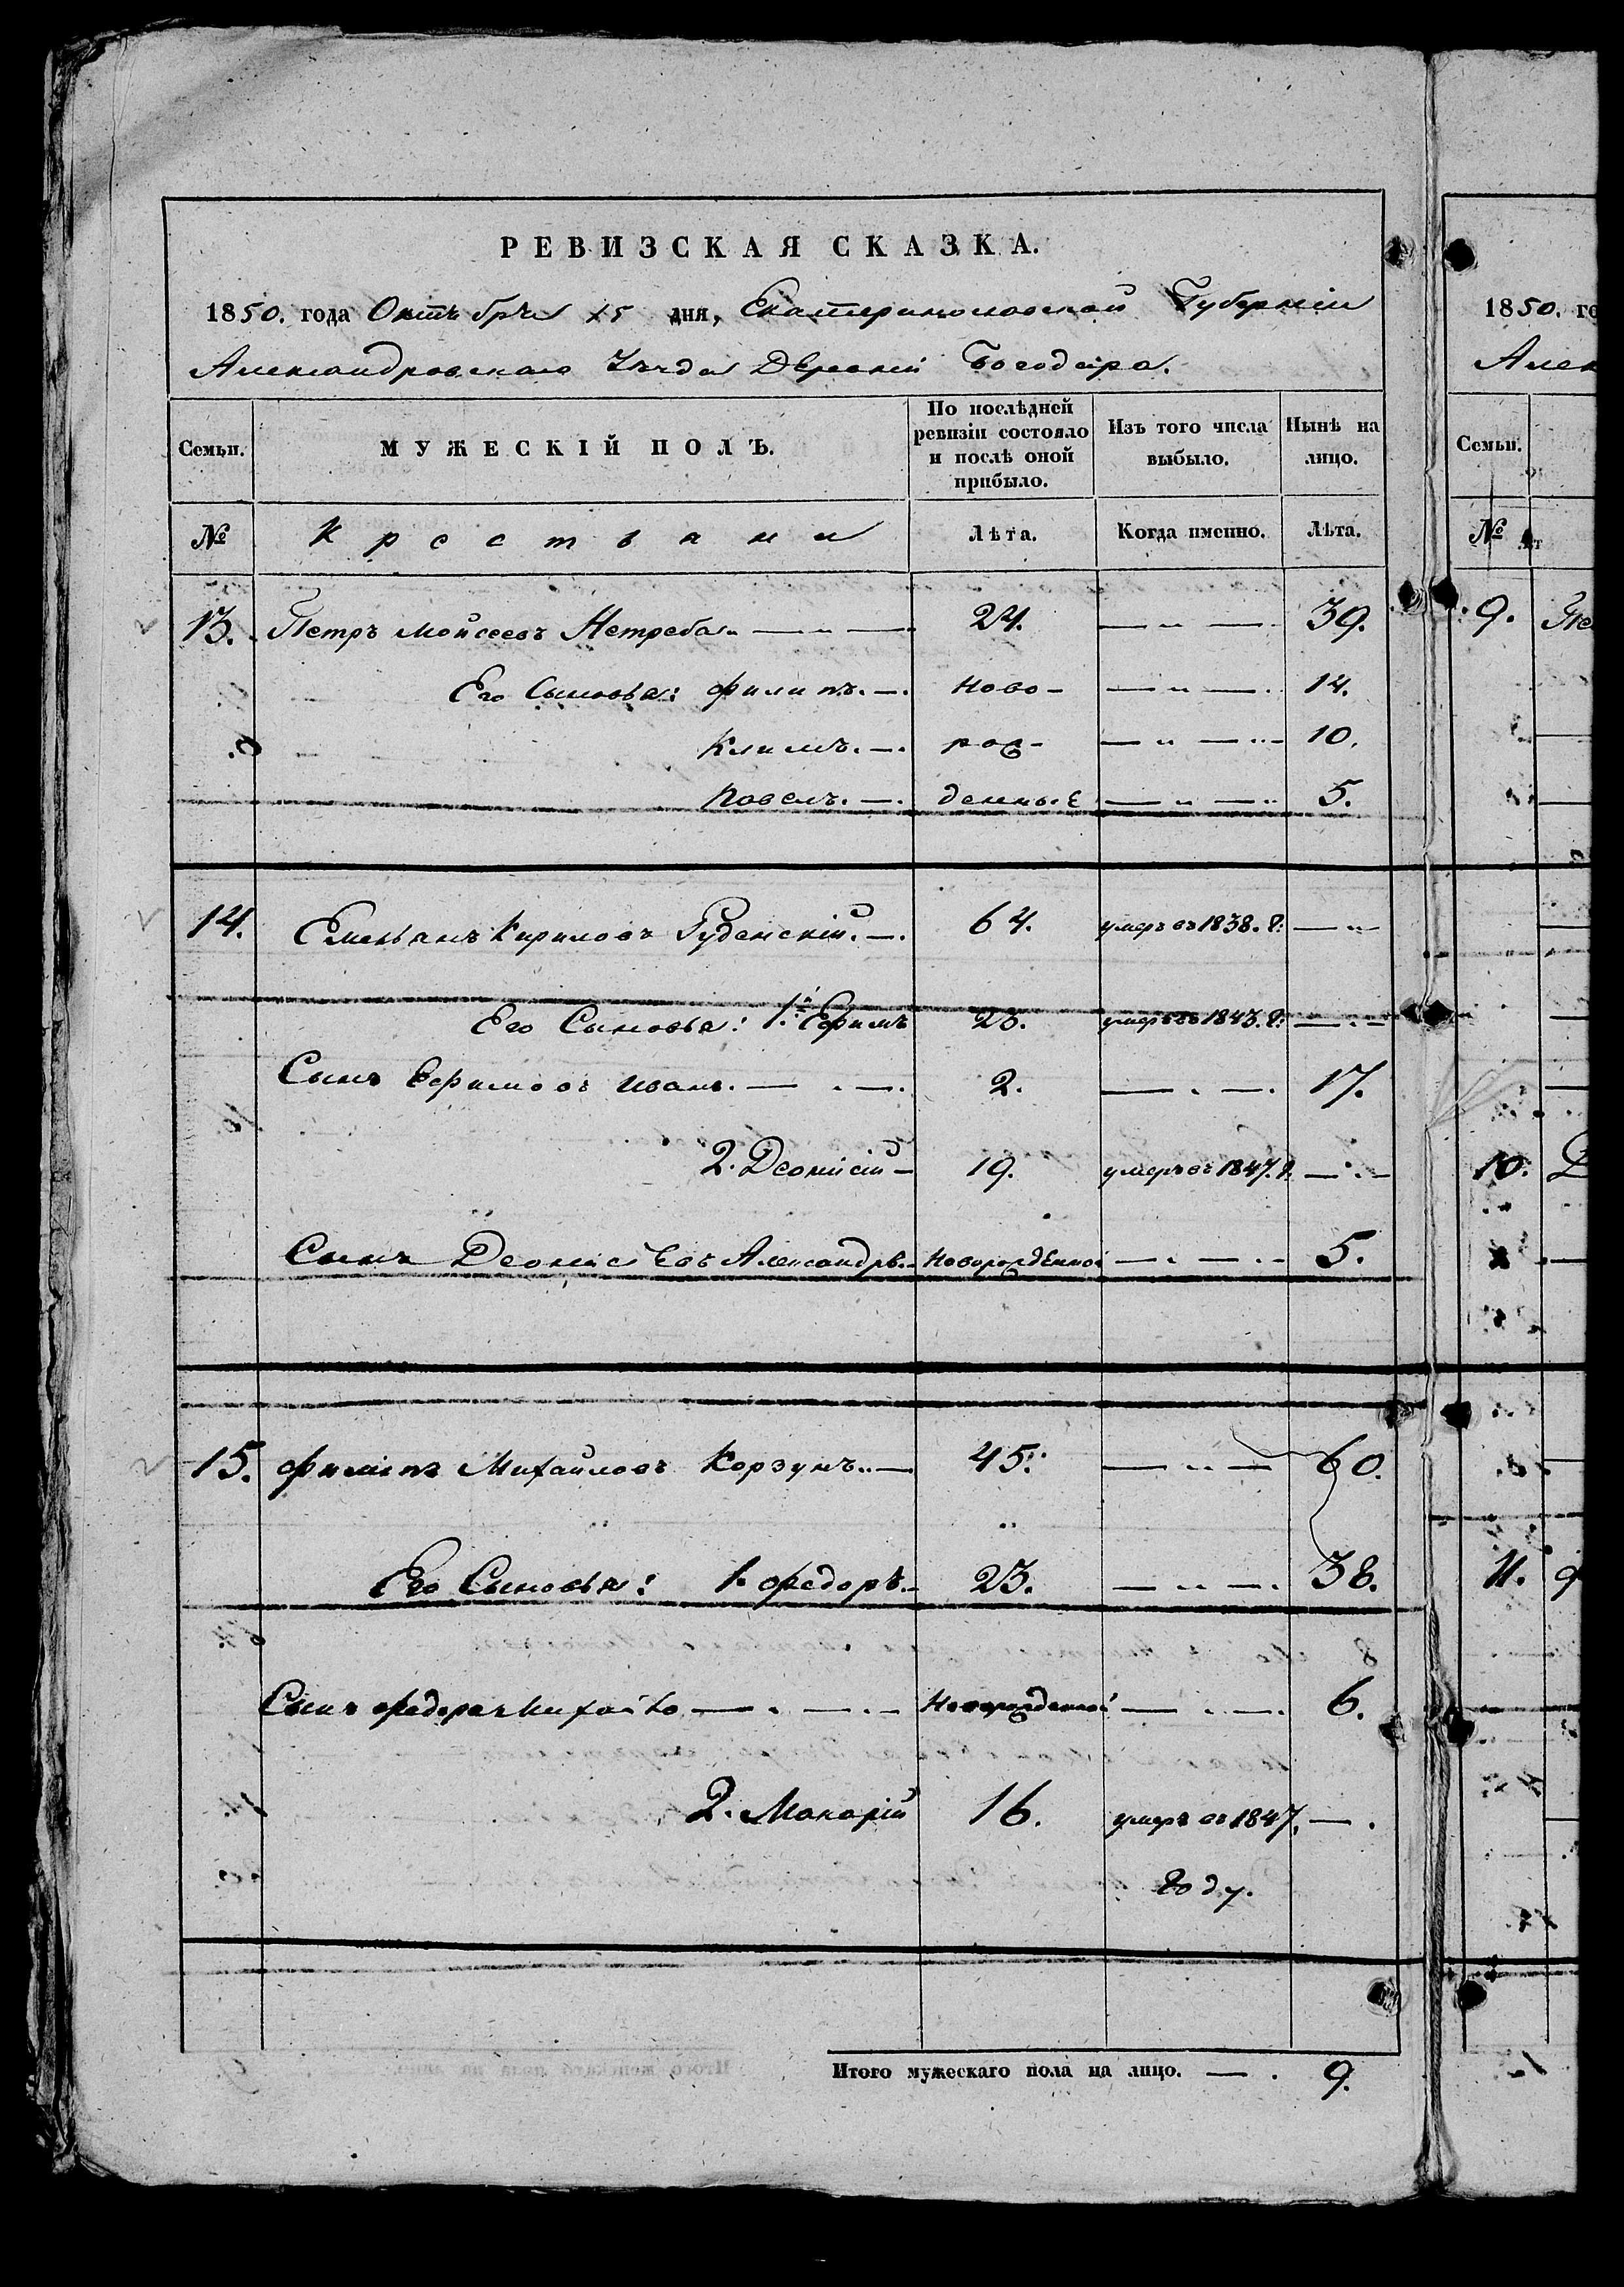 РЕВИЗСКАЯ СКАЗКА.
1850. года Октъбръя 15 дня, Екатеринославской Губерніи
Александровскаго Уѣзда Деревни Богодара.
Семьи. МУЖЕСКІЙ ПОЛЪ. По послѣдней ревизіи состояло и послѣ оной прибыло. Изъ того числа выбыло. Нынѣ на лицо.
№ Крестьяни Лѣта. Когда именно. Лѣта.
13. Петръ Мойсеевъ Нетреба 24. 39.
Его Сыновья: Филипъ. Ново- 14.
Климъ. рож- 10.
Павелъ. денные 5.
14. Емельянъ Кириловъ Руденскій. 64. умеръ въ 1838. г.
Его Сыновья: 1й Ефимъ 23. умеръ въ 1843. г.
Сынъ Ефимовъ Иванъ. 2. 17.
2. Деонисій 19. умеръ въ 1847. г.
Сынъ Деонисіевъ Александръ. Новорожденной 5.
15. Филипъ Михайловъ Корзунъ. 45. 60.
Его Сыновья: 1. Федоръ. 23. 38.
Сынъ Федора Михайло Новорожденной 6.
2. Макарій 16. умеръ въ 1847.
году.
Итого мужескаго пола на лицо. 9.
1850. го
Алек
Семьи.
№
9.
10.
11.